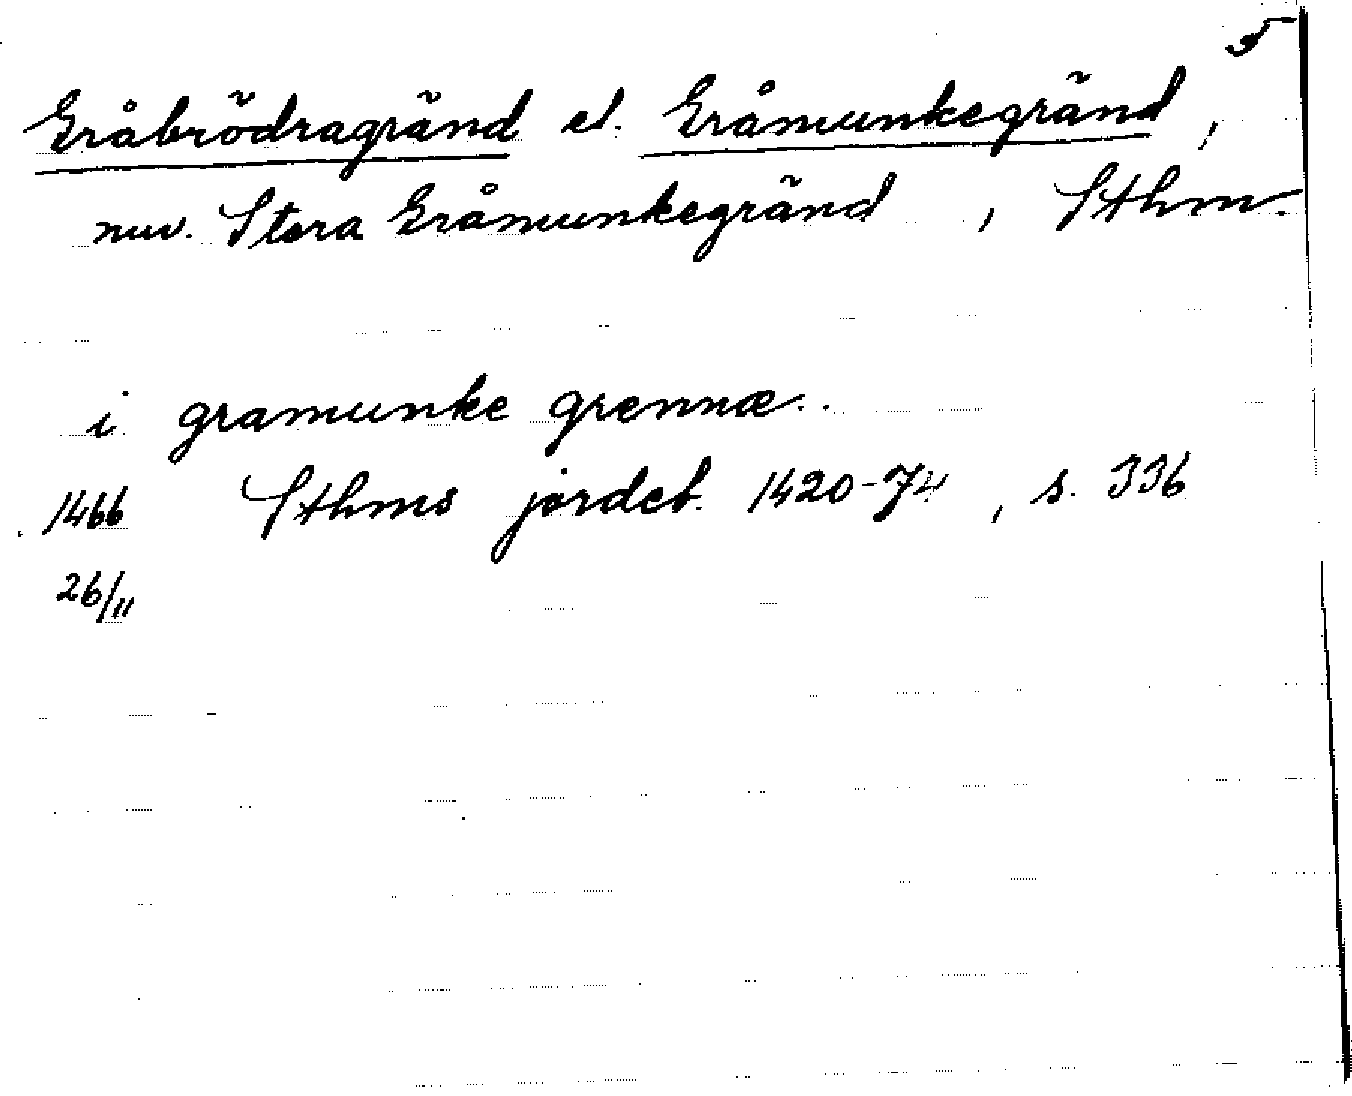 5
Gråbrödragränd el. Gråmunkegränd,
nuv. Stora Gråmunkegränd, Sthm.
i gramunke grennæ..
1466 Sthms jordeb. 1420-74, s. 336
26/11